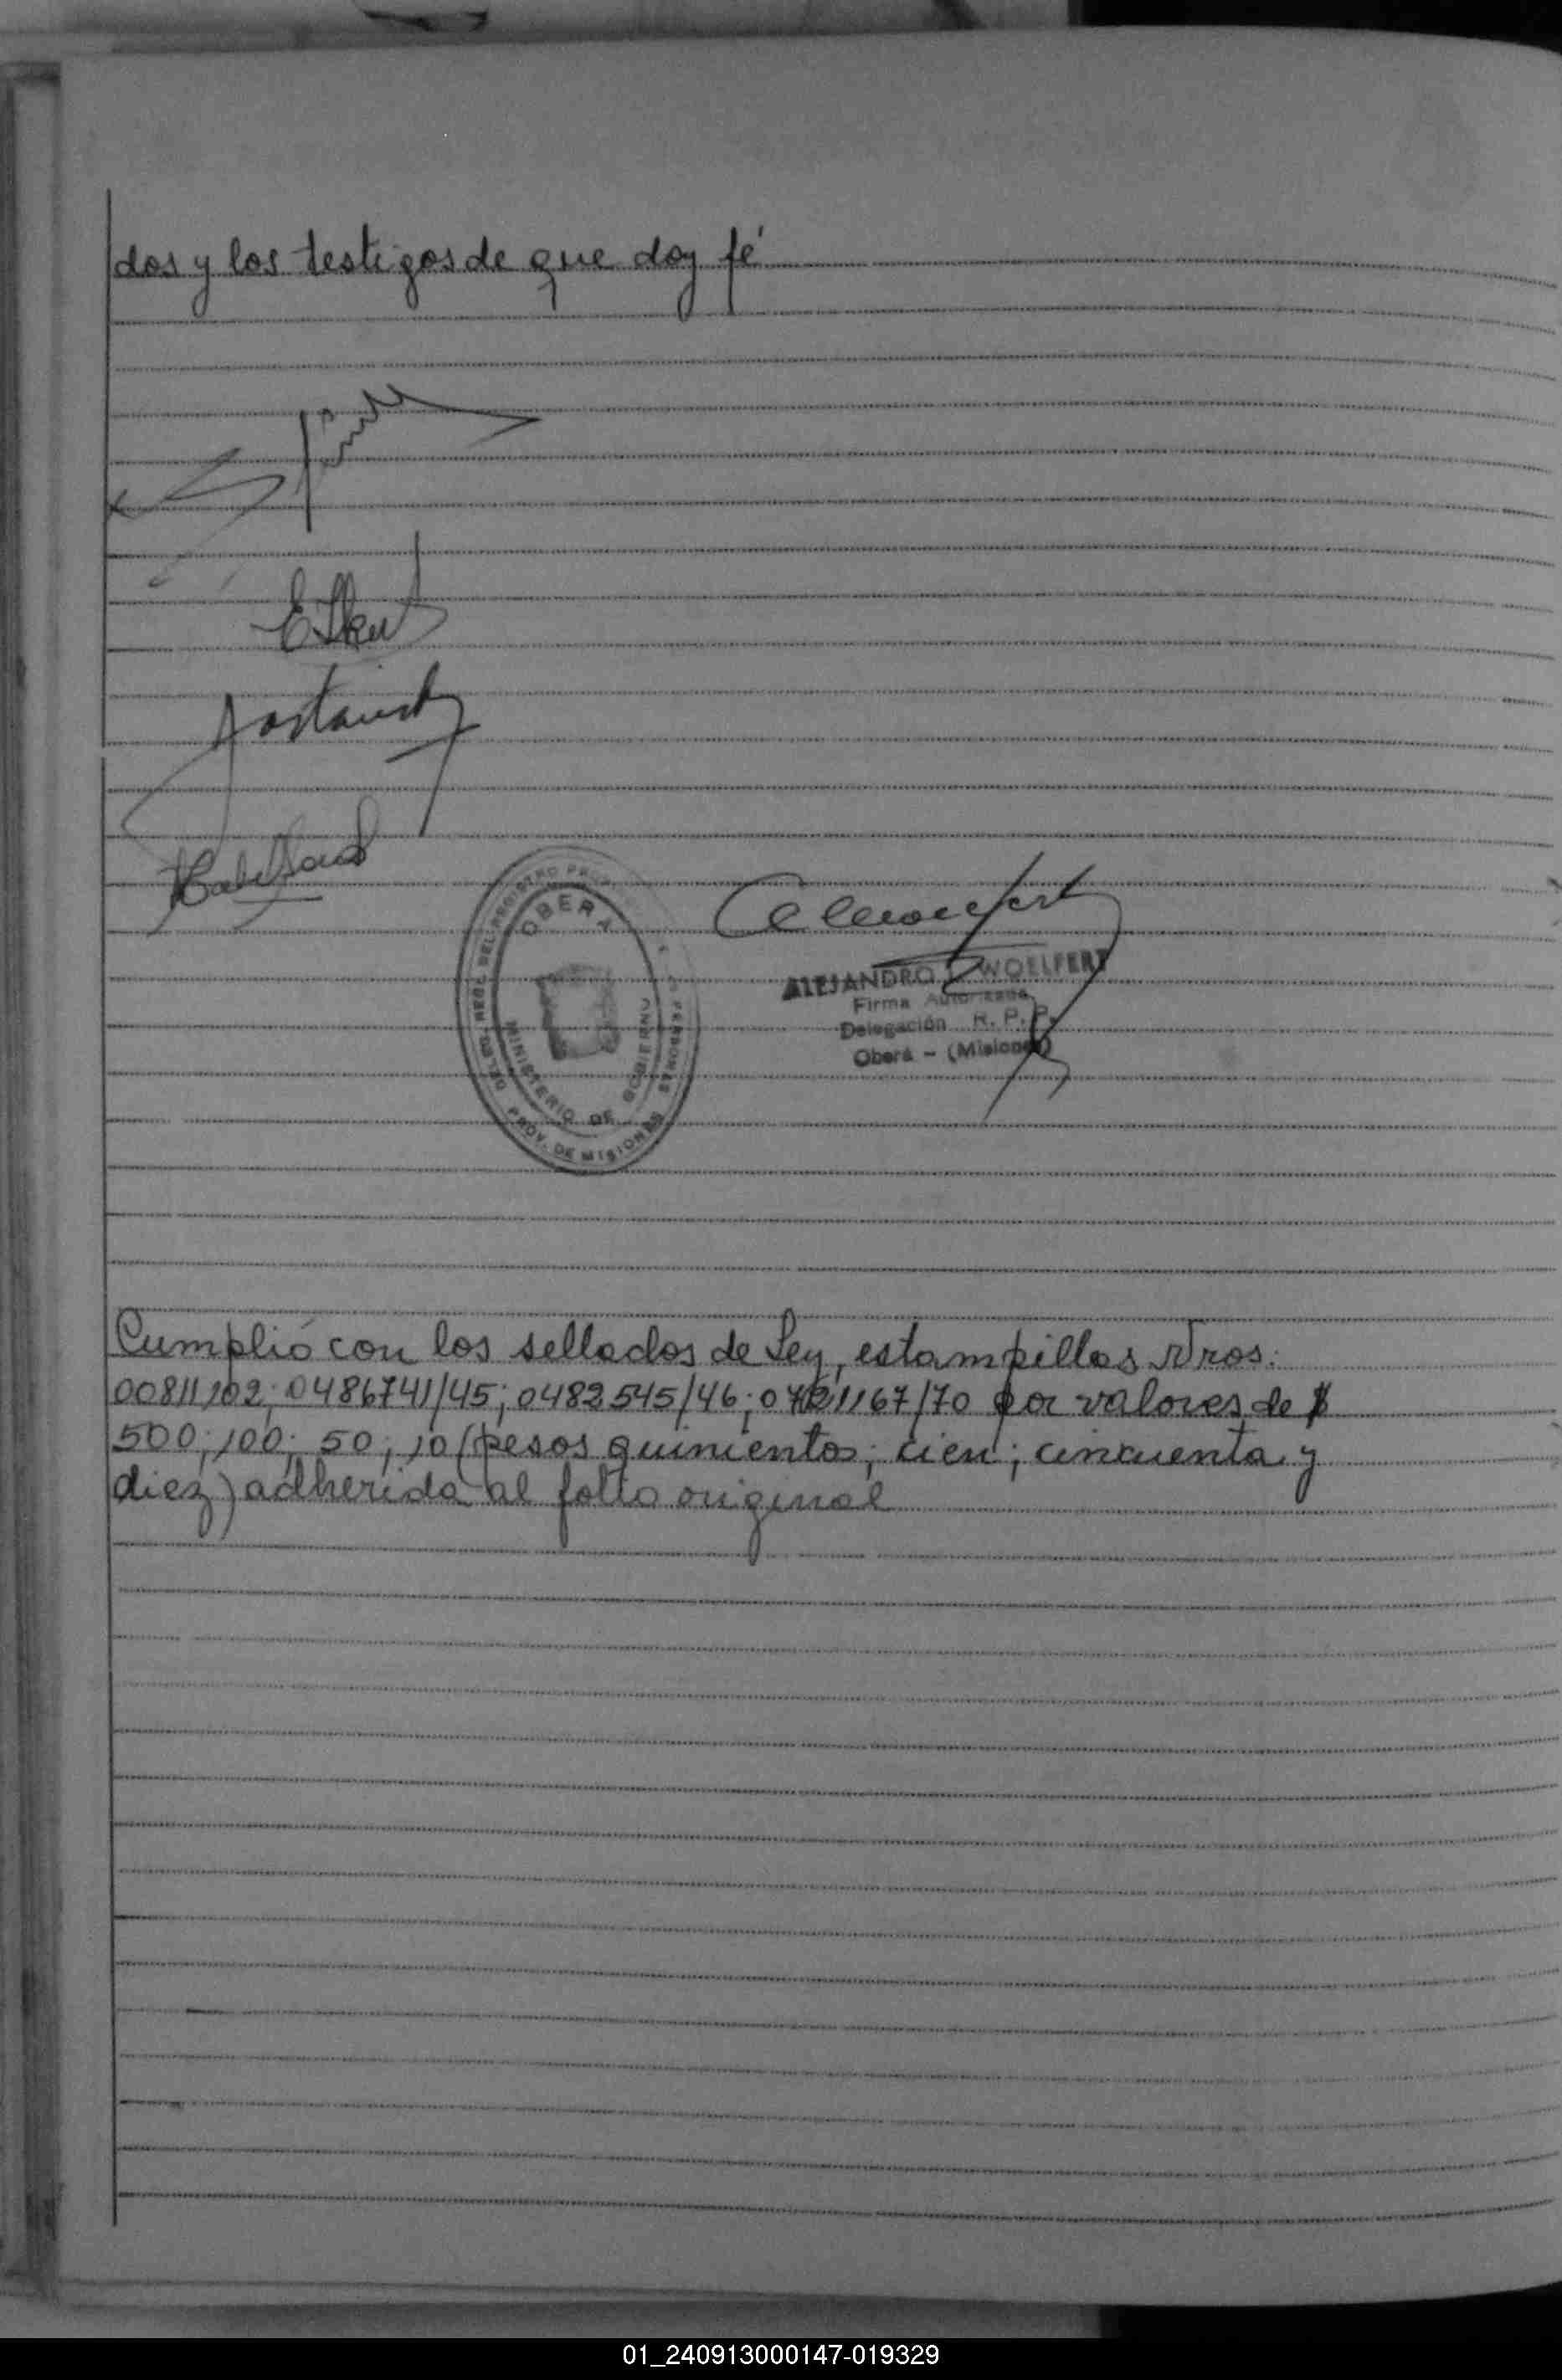 dos y los testigos de que doy fé
OBERA
MINISTERIO DE GOBIERNO
PROV. DE MISIONES
ALEJANDRO WOELFERT
Firma Autorizada
Delegación R. P. P.
Oberá - (Misiones)
Cumplió con los sellados de Ley, estampillas Nros:
00811102; 0486741/45; 0482545/46; 0721167/70 por valores de $
500; 100; 50; 10 (pesos quinientos; cien; cincuenta y
diez) adherida al folio original
01_240913000147-019329